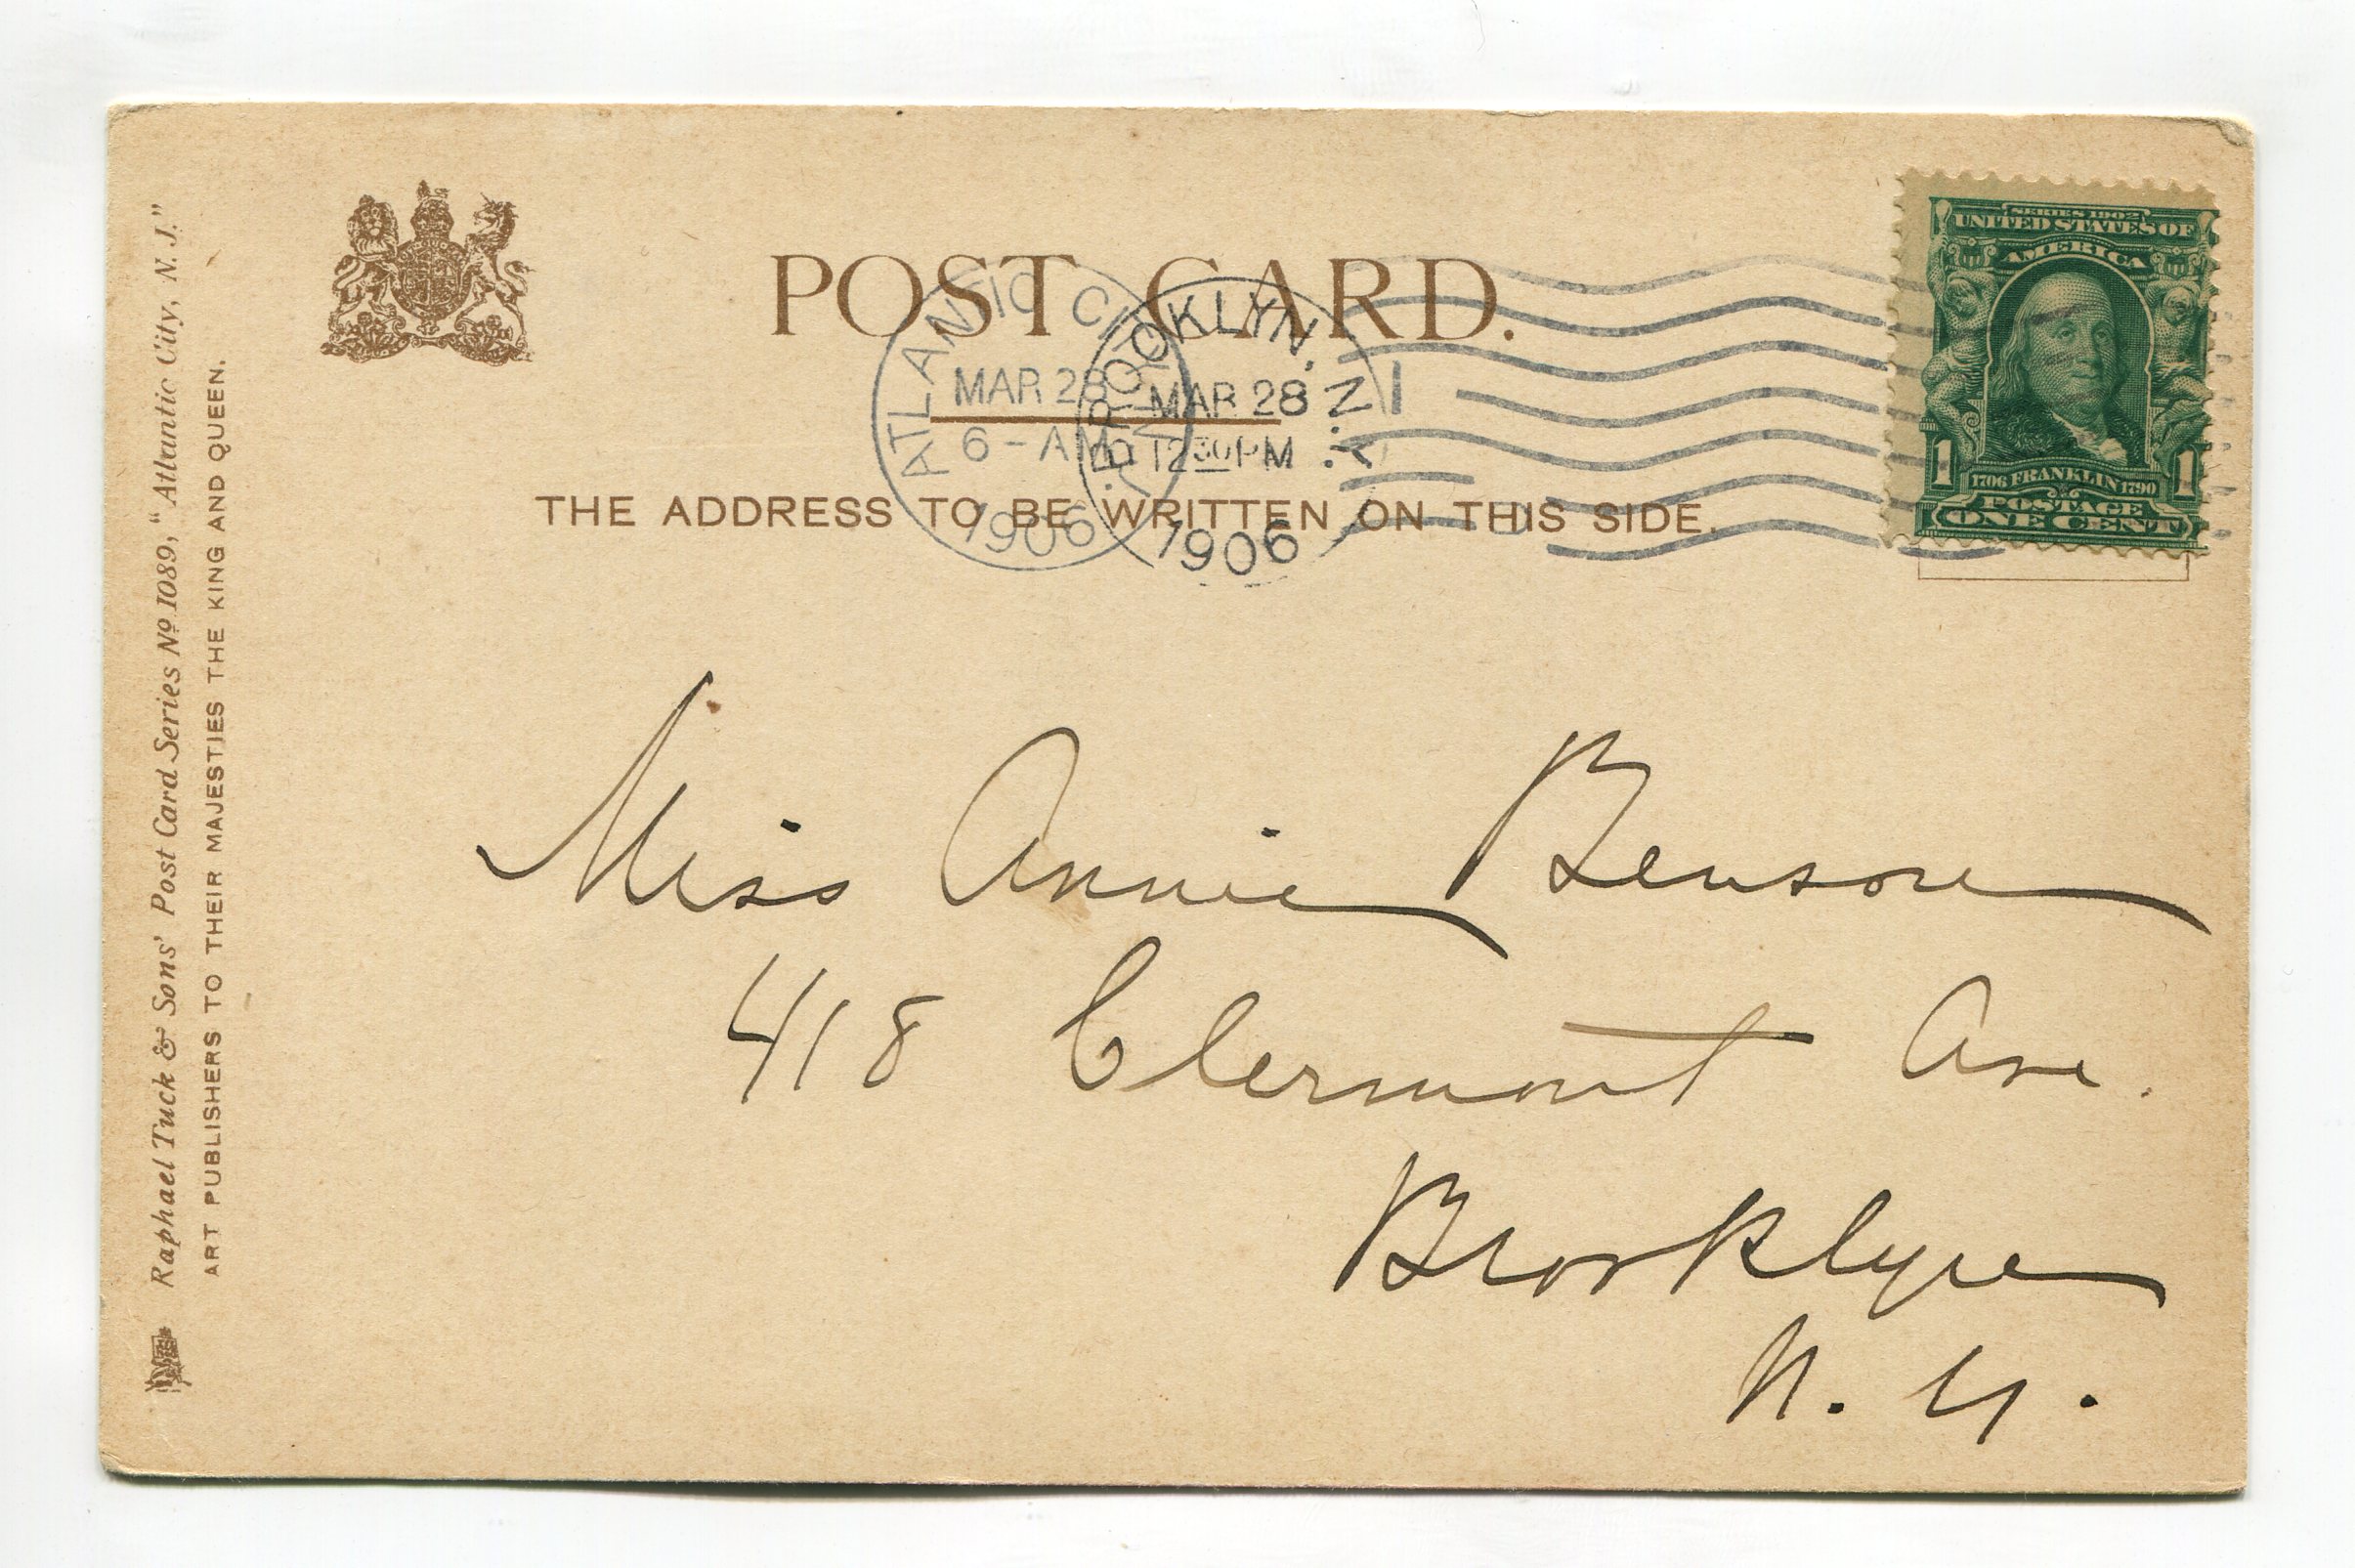 POST CARD.
ATLANTIC CITY, N.J.
MAR 28
6-AM
1906
BROOKLYN, N.Y.
MAR 28
12 30 PM
1906
1
THE ADDRESS TO BE WRITTEN ON THIS SIDE.
SERIES 1902
UNITED STATES OF
AMERICA
1 1706 FRANKLIN 1790 1
POSTAGE
ONE CENT
Miss Annie Benson
418 Clermont Ave.
Brooklyn
N. Y.
Raphael Tuck & Sons' Post Card Series Nº 1089, "Atlantic City, N. J."
ART PUBLISHERS TO THEIR MAJESTIES THE KING AND QUEEN.